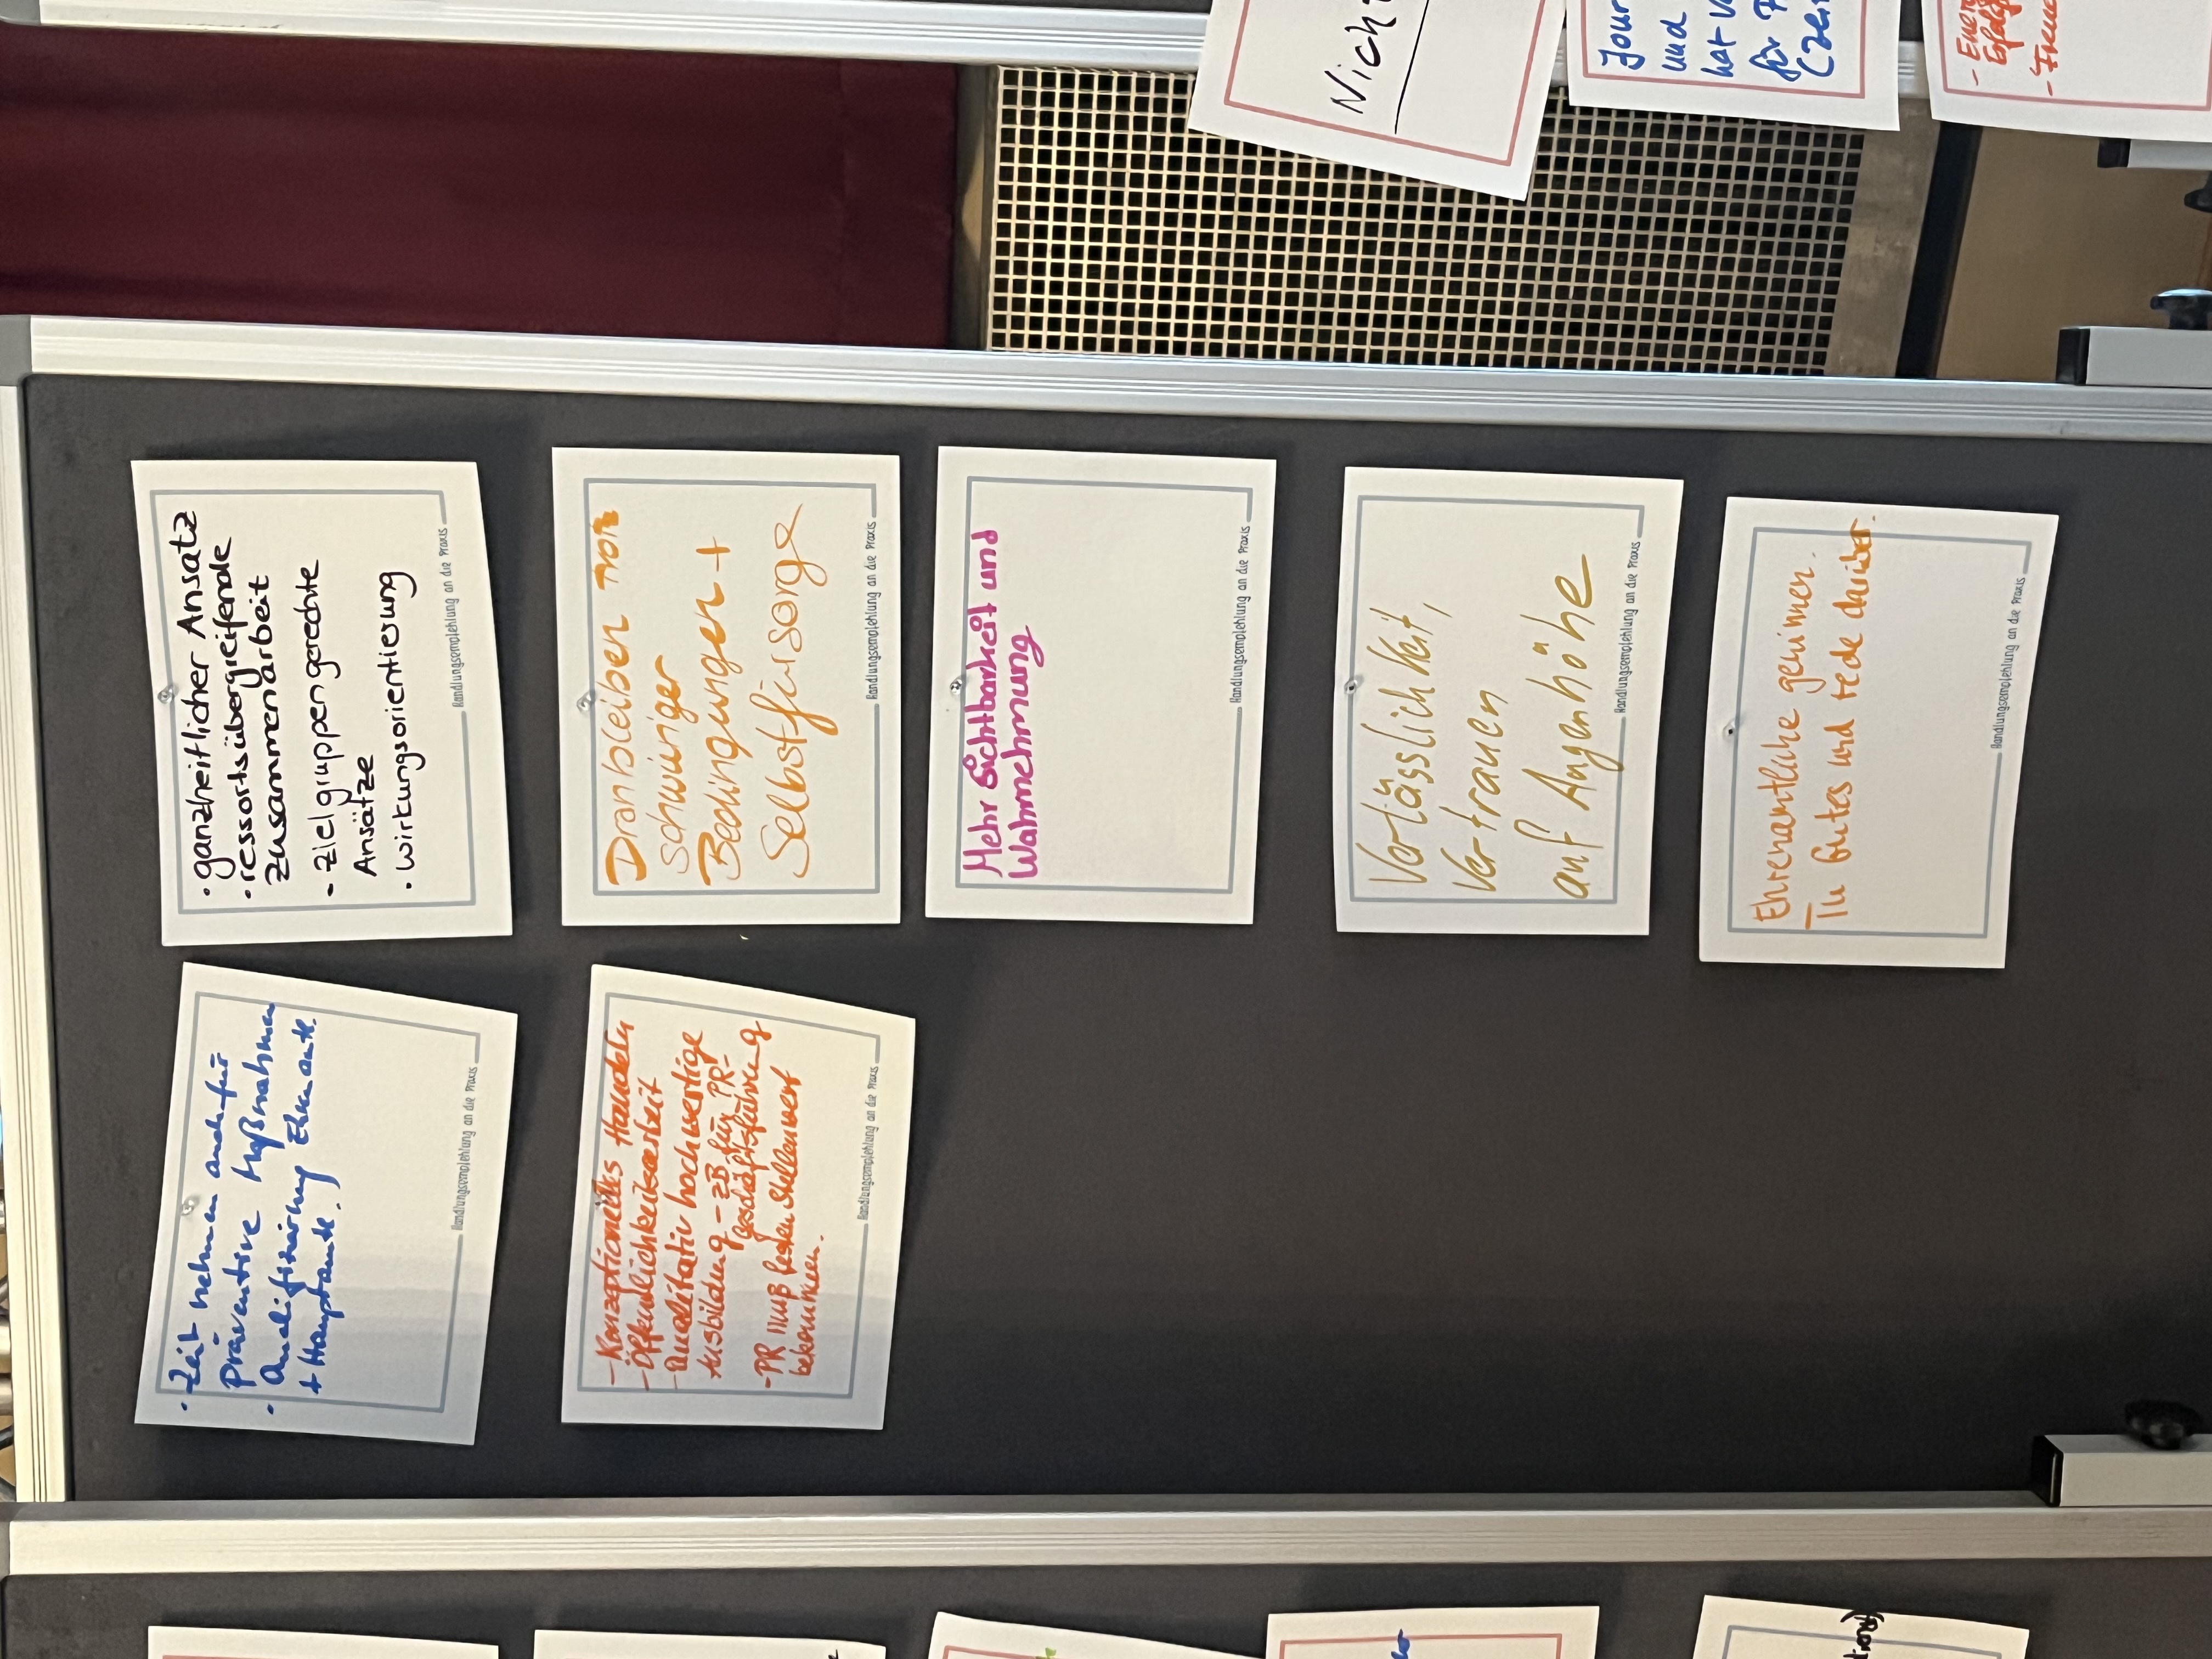 · Zeit nehmen auch für
präventive Maßnahmen
· Qualifizierung Ehrenamtl.
+ Hauptamtl.
Handlungsempfehlung an die Praxis
· ganzheitlicher Ansatz
· ressortsübergreifende
Zusammenarbeit
- zielgruppengerechte
Ansätze
· wirkungsorientierung
Handlungsempfehlung an die Praxis
- Konzeptionells Handeln
- Öffentlichkeitsarbeit
- Qualitativ hochwertige
Ausbildung - zB für PR-
geschäftsführung
- PR muß festen Stellenwert
bekommen.
Handlungsempfehlung an die Praxis
Dranbleiben trotz
schwieriger
Bedingungen +
Selbstfürsorge
Handlungsempfehlung an die Praxis
Mehr Sichtbarkeit und
Wahrnehmung
Handlungsempfehlung an die Praxis
Verlässlichkeit,
Vertrauen
auf Augenhöhe
Handlungsempfehlung an die Praxis
Ehrenamtliche gewinnen.
Tu Gutes und rede darüber.
Handlungsempfehlung an die Praxis
Nicht
und
hat
für